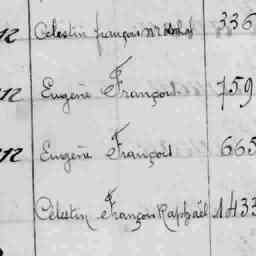 Célestin françois 336
Eugène François 759
Eugène François 665
Célestin François Raphaël 1433